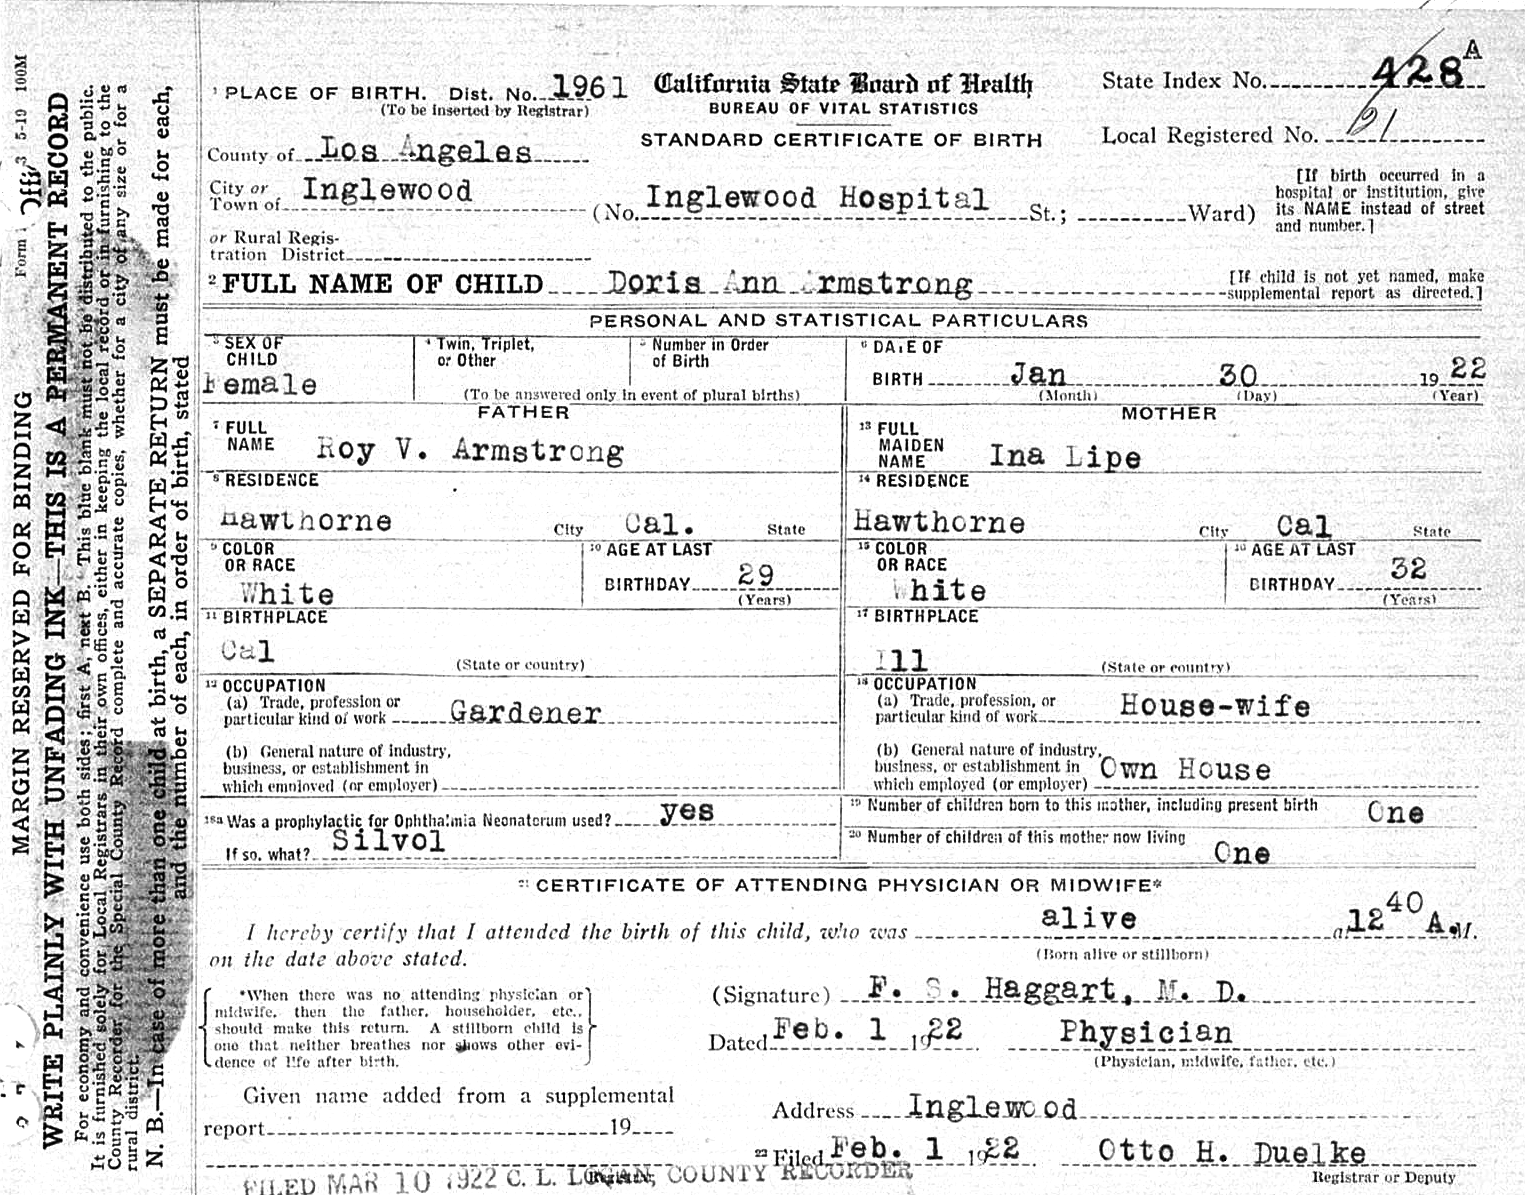 ¹ PLACE OF BIRTH. Dist. No. 1961
(To be inserted by Registrar)
California State Board of Health
BUREAU OF VITAL STATISTICS
STANDARD CERTIFICATE OF BIRTH
State Index No. 428 A
Local Registered No.
County of Los Angeles
City or Town of Inglewood
(No. Inglewood Hospital St.; Ward)
[If birth occurred in a
hospital or institution, give
its NAME instead of street
and number.]
or Rural Regis-
tration District
² FULL NAME OF CHILD Doris Ann Armstrong
[If child is not yet named, make
supplemental report as directed.]
PERSONAL AND STATISTICAL PARTICULARS
³ SEX OF
CHILD
Female
⁴ Twin, Triplet,
or Other
⁵ Number in Order
of Birth
(To be answered only in event of plural births)
⁶ DATE OF
BIRTH Jan 30 1922
(Month) (Day) (Year)
FATHER
⁷ FULL
NAME Roy V. Armstrong
⁸ RESIDENCE
Hawthorne City Cal. State
⁹ COLOR
OR RACE
White
¹⁰ AGE AT LAST
BIRTHDAY 29
(Years)
¹¹ BIRTHPLACE
Cal
(State or country)
¹² OCCUPATION
(a) Trade, profession or
particular kind of work Gardener
(b) General nature of industry,
business, or establishment in
which employed (or employer)
MOTHER
¹³ FULL
MAIDEN
NAME Ina Lipe
¹⁴ RESIDENCE
Hawthorne City Cal State
¹⁵ COLOR
OR RACE
White
¹⁶ AGE AT LAST
BIRTHDAY 32
(Years)
¹⁷ BIRTHPLACE
Ill
(State or country)
¹⁸ OCCUPATION
(a) Trade, profession, or
particular kind of work House-wife
(b) General nature of industry,
business, or establishment in
which employed (or employer) Own House
¹⁸ᵃ Was a prophylactic for Ophthalmia Neonatorum used? yes
If so, what? Silvol
¹⁹ Number of children born to this mother, including present birth One
²⁰ Number of children of this mother now living One
²¹ CERTIFICATE OF ATTENDING PHYSICIAN OR MIDWIFE*
I hereby certify that I attended the birth of this child, who was alive at 12 40 A.M.
(Born alive or stillborn)
on the date above stated.
*When there was no attending physician or
midwife, then the father, householder, etc.,
should make this return. A stillborn child is
one that neither breathes nor shows other evi-
dence of life after birth.
(Signature) F. S. Haggart, M. D.
Dated Feb. 1 1922 Physician
(Physician, midwife, father, etc.)
Given name added from a supplemental
report 19
Address Inglewood
²² Filed Feb. 1 1922 Otto H. Duelke
Registrar or Deputy
FILED MAR 10 1922 C. L. LOGAN, COUNTY RECORDER
Form 3 5-19 100M
MARGIN RESERVED FOR BINDING
WRITE PLAINLY WITH UNFADING INK—THIS IS A PERMANENT RECORD
For economy and convenience use both sides; first A, next B. This blue blank must not be distributed to the public.
It is furnished solely for Local Registrars in their own offices, either in keeping the local record or in furnishing to the
County Recorder for the Special County Record complete and accurate copies, whether for a city of any size or for a
rural district.
N. B.—In case of more than one child at birth, a SEPARATE RETURN must be made for each,
and the number of each, in order of birth, stated